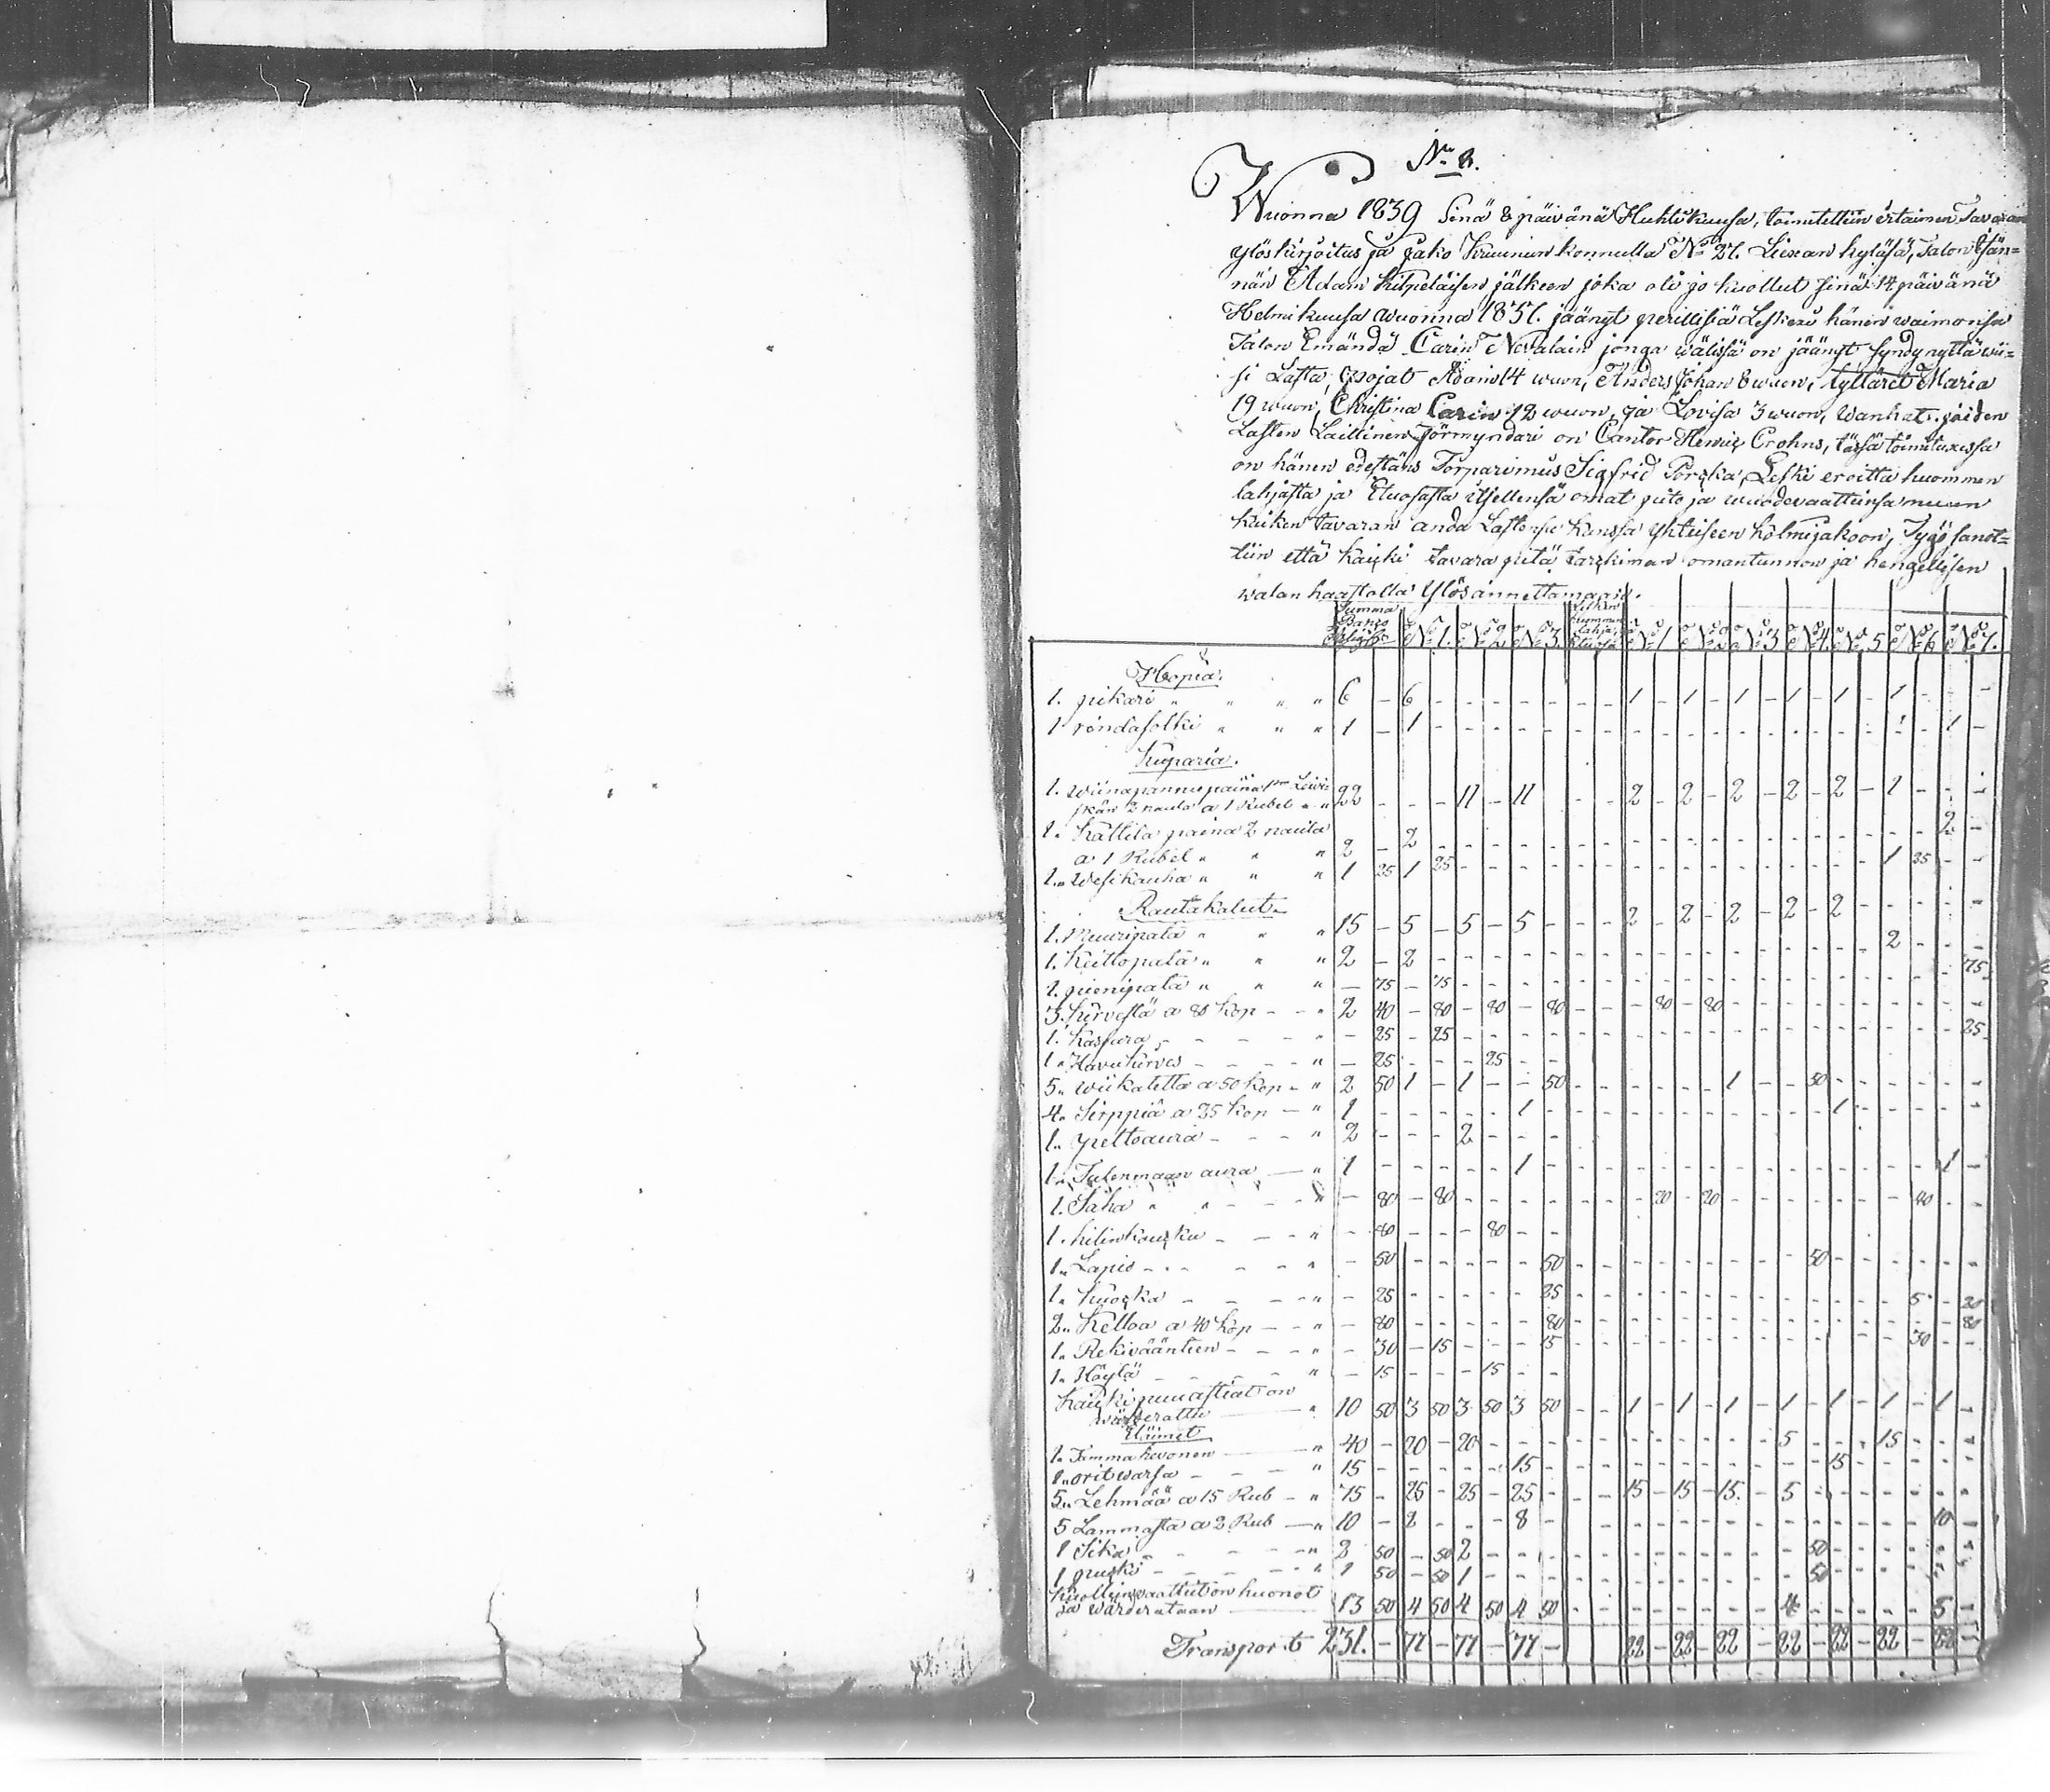 No 8.
Wuonna 1839 Sinä 8 päivänä Huhtikuusa, toimitettiin irtaimen Tavaran
ylöskirjoitus ja jako Kruunun konnulla No 27. Liexan kyläsä, Talon Isän=
nän Adam Kilpeläisen jälkeen joka oli jo kuollut sinä 14 päivänä
Helmikuusa wuonna 1837. jäänyt perillisiä Leskexi hänen waimonsa
Talon Emändä Carin Nevalain jonga wälissä on jäänyt syndynyttä wii=
si Lasta, pojat Adam 14 wuon, Anders Johan 8 wuon, tyttäret Maria
19 wuon, Christina Carin 12 wuon, ja Lovisa 3 wuon, wanhat. joiden
Lasten Laillinen Förmyndari on Cantor Henric Crohns, tässä toimituxessa
on hänen edestäns Torparimus Sigfrid Torcka, Leski eroitta huommen
lahjasta ja Etuosasta itsellensä omat pito ja wuodevaattensa muun
kaiken tavaran anda Lastensa kanssa yhteiseen kolmijakoon, Työ sanot=
tiin että kaicki tavara pitä tarckiman omantunnon ja hengellisen
walan haastolla ylösannettamaan.
Summa Banco No 1. No 2 No 3. Lesken huomen lahja No 1 No 2 No 3 No 4. No 5 No 6 No 7.
Hopia.
1. pikari " " " " 6 - 6 - - - - - - - 1 - 1 - 1 - 1 - 1 - 1 - - -
1 rindasolki " " " 1 - 1 - - - - - - - 1 -
Kuparia.
1. wiinapannu painā 1 Leiwi
skän 2 naula a 1 Rubel " " 22 - - - 11 - 11 - - - 2 - 2 - 2 - 2 - 2 - 1 - - -
1. Kattila paina 2 naula 2 -
a 1 Rubel " " " 2 - 2 - - - -
1. Wesikauha " " " 1 25 1 25 - - - - 1 25 - -
Rautakalut.
1. Muuripata " " " 15 - 5 - 5 - 5 - - - 2 - 2 - 2 - 2 - 2 - - - -
1. Keittopata " " " 2 - 2 - - - - 2 - - -
1. pienipata " " " - 75 - 75 - - - - 75
3. kirvestä a 80 kop - - " 2 40 - 80 - 80 - 80 - - - 80 - 80 - - -
1. Kassara - - - " - 25 - 25 - - - - 25
1. Havukirves - - - " - 25 - - - 25 - -
5. Wiikatetta a 50 kop - " 2 50 1 - 1 - - 50 - - - 1 - - 50 - - -
4. Sirppiä a 25 kop - " 1 - - - - - 1 - - - 1 - - -
1. peltoaura - - - " 2 - - - 2 - - -
1. Talonmaan aura - " 1 - - - - - 1 - - - 1 -
1. Saha " " - - - " - 80 - 80 - - - - 20 - 20 - - - 40 - -
1. hilinkoucku - - - " - 80 - - - 80 - -
1. Lapio - - - - " - 50 - - - - - 50 - - - 50 - - -
1. Kuocka - - - " - 25 - - - - - 25 - - - 5 - 20
2. Kelloa a 40 kop - - " - 80 - - - - - 80 - - - 80
1. Rekiwääntien - - - " - 30 - 15 - - - 15 - - - 30 - -
1. Höylä - - - " - 15 - - - 15 - -
Kaicki puuastiat on
wärderattu - " 10 50 3 50 3 50 3 50 - - 1 - 1 - 1 - 1 - 1 - 1 - 1 -
Eläimet
1. Tamma hevonen - " 40 - 20 - 20 - - - - 5 - - - 15 - - -
1. orit warsa - - - " 15 - - - - - 15 - - - 15 - - -
5. Lehmää a 15 Rub - " 75 - 25 - 25 - 25 - - - 15 - 15 - 15. - 5 - - -
5 Lammasta a 2 Rub - " 10 - 2 - - - 8 - - - 10 -
1 Sika - - - " 2 50 - 50 2 - - - 50 - - -
1 pucki - - - " 1 50 - 50 1 - - - 50 - - -
Kuollun waattet on huonot
ja wärderataan - 13 50 4 50 4 50 4 50 - - - 4 - - - 5 -
Transport 231. - 77 - 77 - 77 - 22 - 22 - 22 - 22 - 22 - 22 - 22